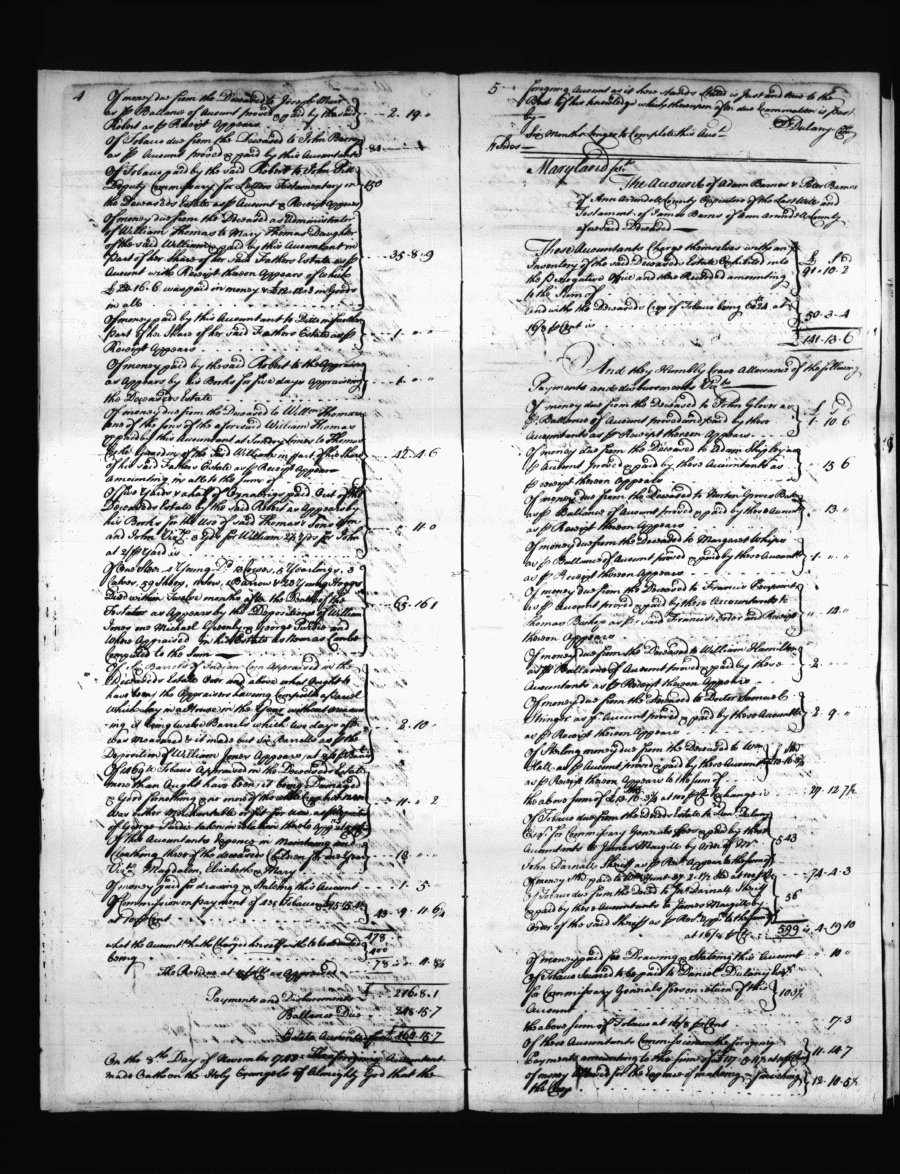 4
Of money due from the Deceased to Joseph Muir
as p Ballance of Account proved & paid by the said
Robert as p Receipt Appears 2 . 19 . "
Of Tobacco due from the Deceased to John Barry
as p Account proved & paid by this Accountant
Of Tobacco paid by the said Robert to John
Deputy Commissary for Letters Testamentary on 150
the Deceaseds Estate as p Account & Receipt Appears
Of money due from the Deceased as administrator
of William Thomas to Mary Thomas Daughter
of the said William & paid by this Accountant in
Part of her Share of her Said Fathers Estate as p 35 . 8 . 9
Account with Receipt thereon Appears of which
£ 22 . 16 . 6 was paid in money & £12 . 12 . 3 in Goods
in all
Of money paid by this Accountant to Ditto in further
Part of her Share of her said Fathers Estate as p 1 . " . "
Receipt Appears
Of money paid by the said Robert to the Appraisers
as Appears by his Books for five days Appraising 1 . " . "
the Deceaseds Estate
Of money due from the Deceased to Willm Thomas
one of the Sons of the aforesaid William Thomas
& paid by this Accountant at Sundry times to Thomas
the Guardian of the said William in part of his Share 42 . 4 . 6
of his said Fathers Estate as p Receipt Appears
amounting in all to the Sum of
Of five Yards & a half of Oznabrigs paid Out of the
Deceaseds Estate by the said Robert as Appears by
his Books for the use of said Thomas's Sons Wm
and John Vizt. 3 Yds for William 2½ Yds for John " 11 . 0
at 2/ p Yard is
Of One Steer 1 Young Do 2 Cowes, 5 Yearlings, 3
Calves, 59 Sheep, 1 Barrow & 23 Young Hoggs
Died within Twelve months after the Death of the
Testator as Appears by the Depositions of William 65 . 16 . 1
Jones and Michael and George Purdie and
Where Appraised In his Estate as Near as Can be
Computed to the Sum
Of Six Barrels of Indian Corn Appraised in the
Deceaseds Estate Over and above what Ought to
have been, the Appraisers having Computed a parcel
which lay in a House in the Year without measur
ing, it being twelve Barrels which two days after 2 . 10 "
was measured & it made but Six Barrells as p the
Deposition of William Jones Appears at p Barrel
Of Tobacco Appraised in the Deceaseds Estate
more than Ought have been, it being Damaged
& Good for nothing & no more of the whole Crop
Was either Merchantable or fit for use as p Deposition 11 . " 2
of George Purdie taken in relation thereto Appears
Of this Accountants Expence in Maintaining and
Cloathing three of the deceaseds Children for One Year 18 . " . "
Vizt. Magdalen, Elizabeth & Mary
Of money paid for drawing & Stating this Account " . 5 . "
Of Commission on payment of
at 10 p Cent 43 " 9 . 11 . 6¼
478
what the Accountant hath Charged himself with to be deducted
being 400
The Residue at as Approved 78 is " 11 . 8½
Payments and Disbursements £ 216 . 8 . 1
Ballance Due 248 . 15 . 7
Estate Amounts to
On the 3th Day of November 1743 the foregoing Accountant
made Oath on the Holy Evangels of Almighty God that the
5
foregoing Account as it here stands Stated is Just and true to the
Best of his knowledge which thereupon after due Examination is past
by D Dulany
Six Months longer to Complete this Acct
Maryland sst.
The Account of Adam Barnes & Peter Barnes
of Ann Arundell County Executors of the Last Will and
Testament of James Barnes of Ann Arundell County
aforesaid Deceased
These Accountants Charge themselves with an
Inventory of the said Deceaseds Estate Exhibited into £ s d
the Prerogative Office and there Recorded amounting 91 . 10 . 2
to the Sum of
And with the Deceaseds Crop of Tobacco being at
16/8 p Cent is 50 . 3 . 4
£ 141 . 13 . 6
And they Humbly Crave Allowance of the following
Payments and disbursements Vizt.
Of money due from the Deceased to John Glover as £ s d
p Ballance of Account proved and paid by these 1 . 10 . 6
Accountants as p Receipt thereon Appears
Of money due from the Deceased to Adam Shipley as
p Account proved & paid by these Accountants as " 13 . 6
p receipt thereon Appears
Of money due from the Deceased to
as p Ballance of Account proved & paid by these Accountants " 13 . "
as p Receipt thereon Appears
Of money due from the Deceased to Margaret Whips
as p Ballance of Account proved & paid by these Accountants 1 . " . "
as p Receipt thereon Appears
Of money due from the Deceased to Francis Pierpoint
as p Account proved & paid by these Accountants to
Thomas Bishop as p said Francis's Order and Receipt " 12 "
thereon Appears
Of money due from the Deceased to William Hamilton
as p Ballance of Account proved & paid by these 2 . " . "
Accountants as p Receipt thereon Appears
Of money due from the Deceased to Doctor Samuel
Stringer as p Account proved & paid by these Accountants 2 . 9 . "
as p Receipt thereon Appears
Of Sterling money due from the Deceased to Wm
Hall as p Account proved & paid by these Accountants
as p Receipt thereon Appears to the Sum of
the above sum of £ p Ct Exchange is 29 . 12 . 7½
Of Tobacco due from the Deceds Estate to Danl. Dulany
Esqr. for Commissary Generals fees & paid by these 543
Accountants to James Macgill by Order of Mr.
John Darnall Sheriff as p Rect. Appears to the Sum of
Of money Sterl. paid to Wm Hunt £ 37 . 2 . 1½ Sterl at 74 . 4 . 3
Of Tobacco due from the Deced to Jno Darnall Sheriff
& paid by these Accountants to James Macgill by 56
Order of the said Sheriff as p Rect. Appr. to the Sum of
at 16/8 p Ct 599 is 4 . 19 . 10
Of money paid for Drawing & Stating this Account " 10 "
Of Tobacco Secured to be paid to Daniel Dulany Esqr
for Commissary Generals fees on return of this 103½
Account
the above Sum of Tobacco at 16/8 p Cent " 17 . 3
Of these Accountants Commission on the foregoing
Payments amounting to the Sum of £ 117 . 5 . 11 at 10 p Ct 11 . 14 . 7
Of money Allowed for the Expence of making & finishing
the Crop 12 . 10 . 5½